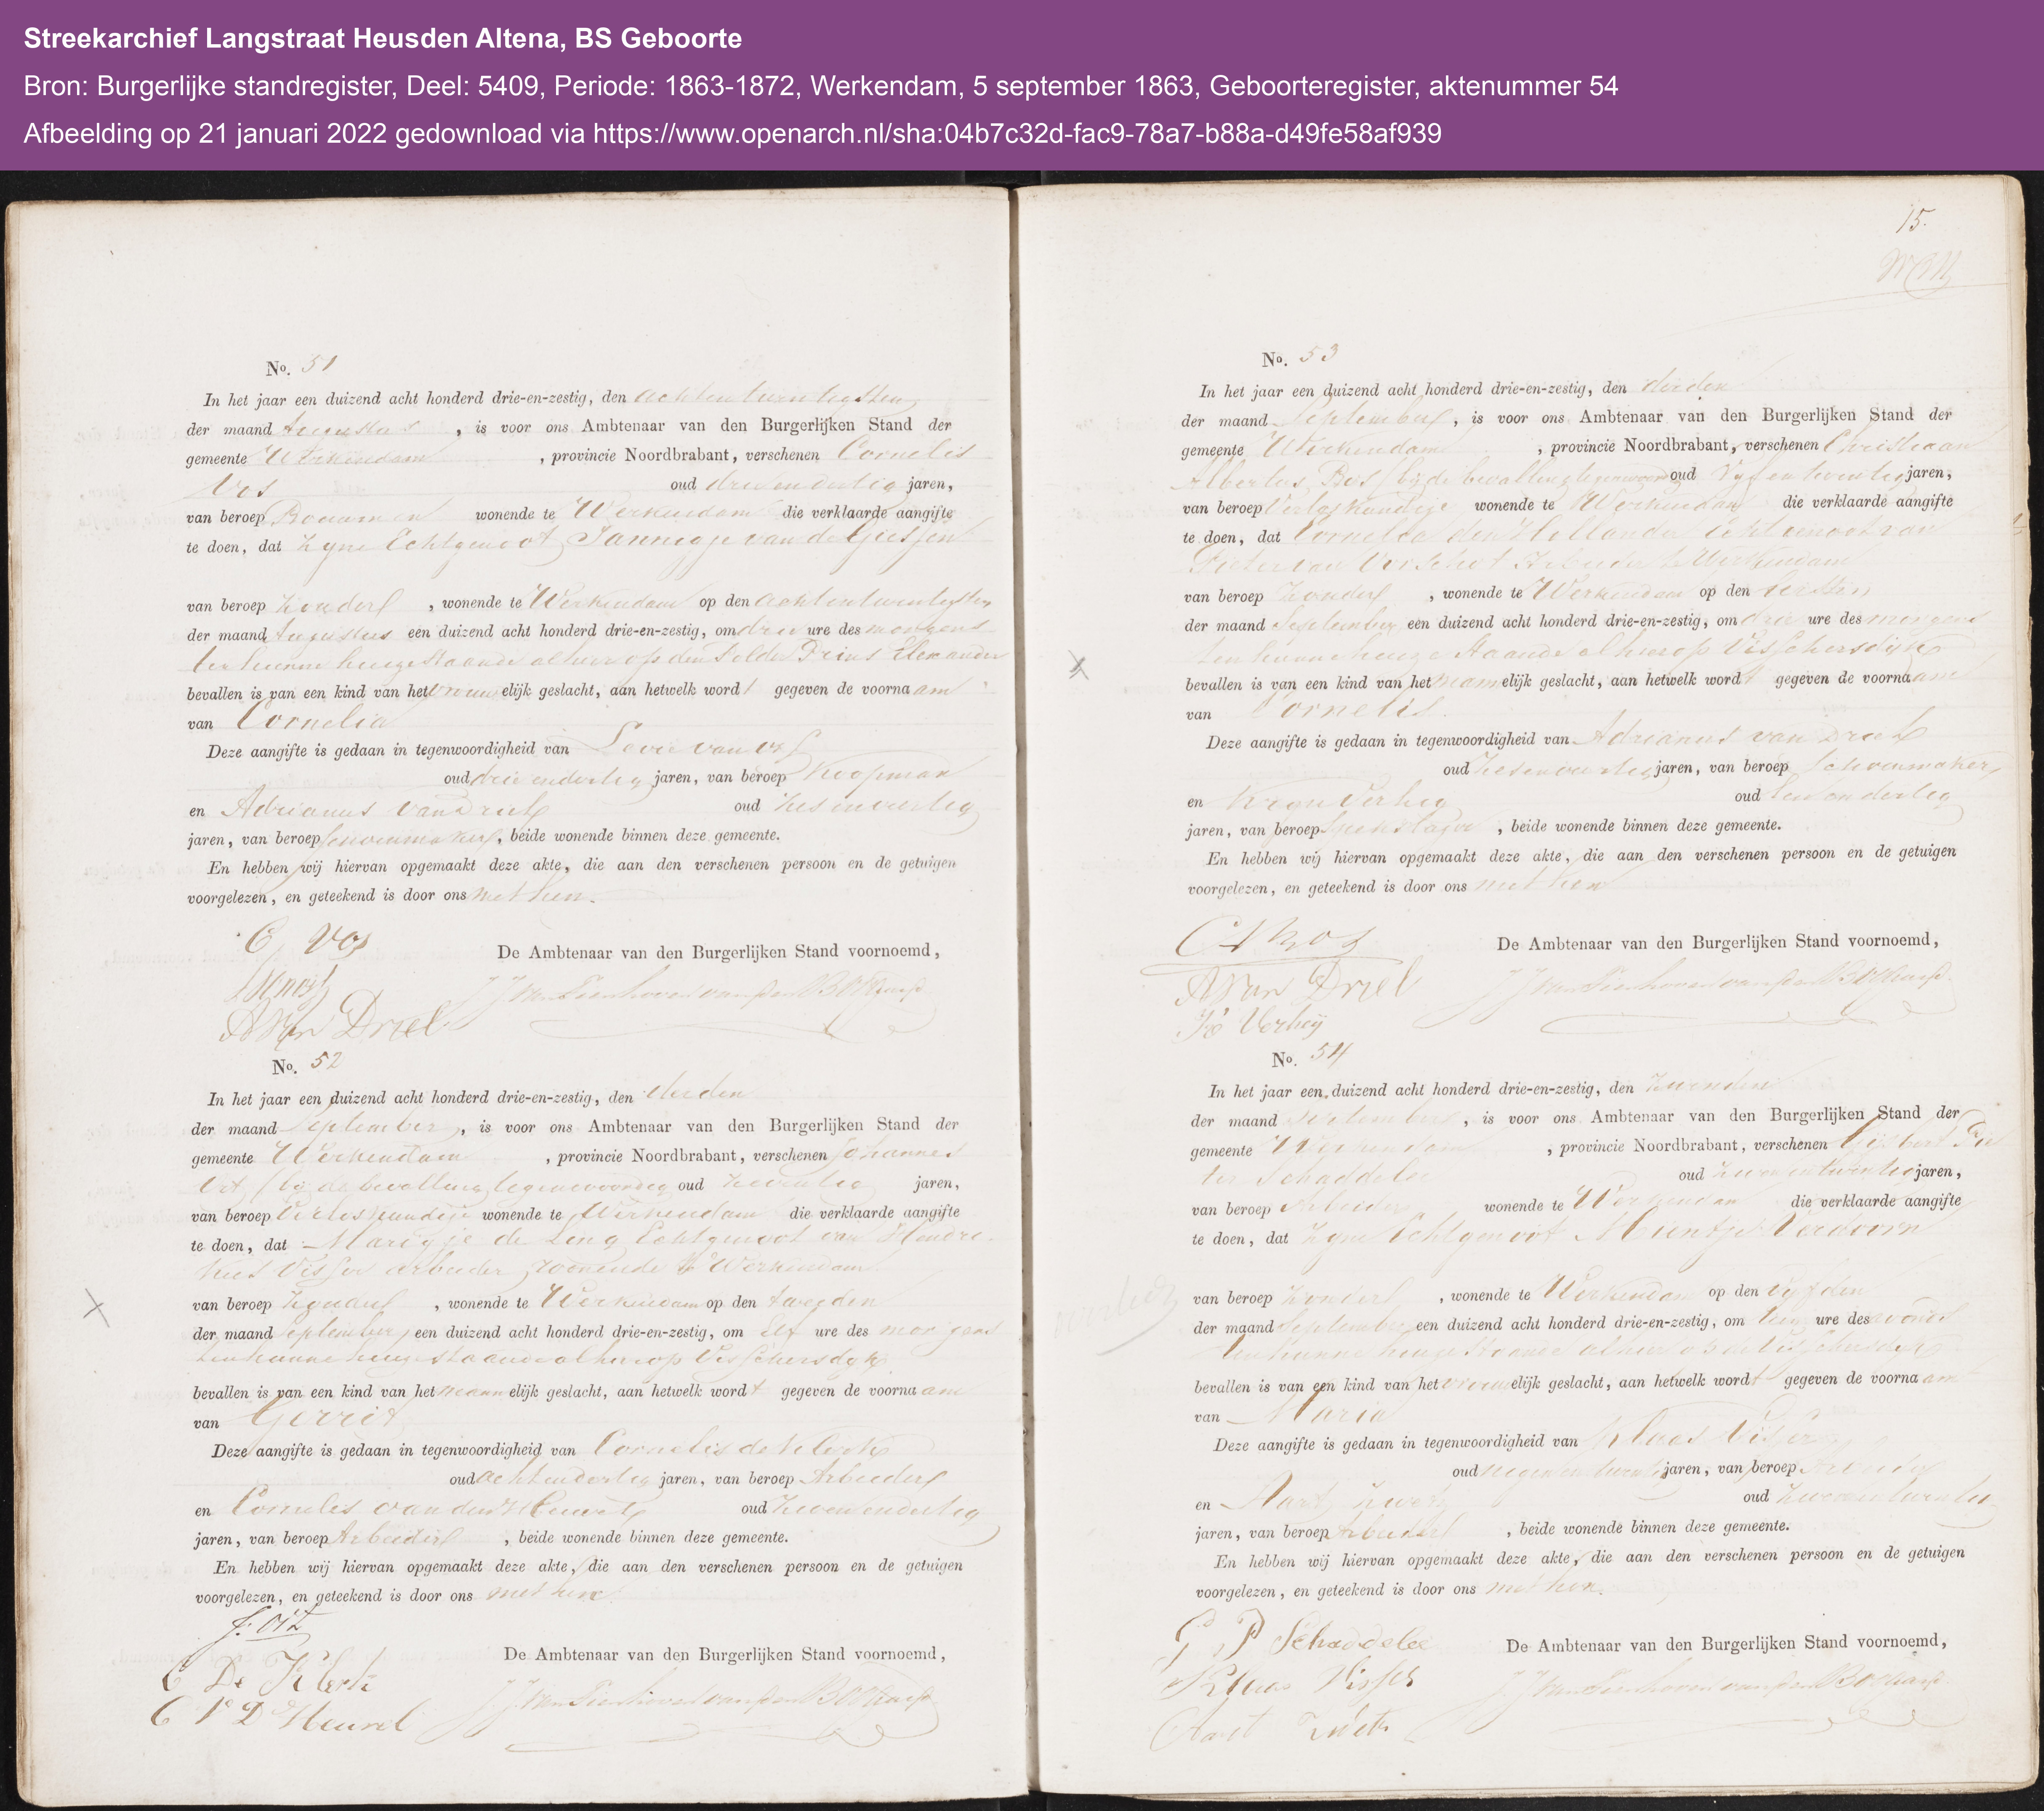 Streekarchief Langstraat Heusden Altena, BS Geboorte
Bron: Burgerlijke standregister, Deel: 5409, Periode: 1863-1872, Werkendam, 5 september 1863, Geboorteregister, aktenummer 54
Afbeelding op 21 januari 2022 gedownload via https://www.openarch.nl/sha:04b7c32d-fac9-78a7-b88a-d49fe58af939
No. 51
In het jaar een duizend acht honderd drie-en-zestig, den achtentwintigsten
der maand Augustus, is voor ons Ambtenaar van den Burgerlijken Stand der
gemeente Werkendam, provincie Noordbrabant, verschenen Cornelis
Vos oud drieendertig jaren,
van beroep Bouwman wonende te Werkendam die verklaarde aangifte
te doen, dat zyne Echtgenoot Jannigje van de Giessen
van beroep zonder, wonende te Werkendam op den achtentwintigsten
der maand Augustus een duizend acht honderd drie-en-zestig, om drie ure des morgens
ten hunne huize staande alhier op den Polder Prins Alexander
bevallen is van een kind van het vrouwelijk geslacht, aan hetwelk wordt gegeven de voornaam
van Cornelia
Deze aangifte is gedaan in tegenwoordigheid van Levie van
oud drieendertig jaren, van beroep Koopman
en Adrianus van Driel oud zesenveertig
jaren, van beroep schoenmaker, beide wonende binnen deze gemeente.
En hebben wij hiervan opgemaakt deze akte, die aan den verschenen persoon en de getuigen
voorgelezen, en geteekend is door ons met hen.
C Vos
De Ambtenaar van den Burgerlijken Stand voornoemd,
A Van Driel
No. 52
In het jaar een duizend acht honderd drie-en-zestig, den derden
der maand September, is voor ons Ambtenaar van den Burgerlijken Stand der
gemeente Werkendam, provincie Noordbrabant, verschenen Johannes
(bij de bevalling tegenwoordig oud zeventig jaren,
van beroep Verloskundige wonende te Werkendam die verklaarde aangifte
te doen, dat Marigje de Leng Echtgenoot van Hendri-
kus Visser arbeider wonende te Werkendam
van beroep zonder, wonende te Werkendam op den tweeden
der maand September een duizend acht honderd drie-en-zestig, om elf ure des morgens
ten hunne huize staande alhier op Visschersdyk
bevallen is van een kind van het mannelijk geslacht, aan hetwelk wordt gegeven de voornaam
van Gerrit
Deze aangifte is gedaan in tegenwoordigheid van Cornelis de Klerk
oud achtendertig jaren, van beroep Arbeider
en Cornelis van den Heuvel oud zevenendertig
jaren, van beroep Arbeider, beide wonende binnen deze gemeente.
En hebben wij hiervan opgemaakt deze akte, die aan den verschenen persoon en de getuigen
voorgelezen, en geteekend is door ons met hen.
De Ambtenaar van den Burgerlijken Stand voornoemd,
C De Klerk
C V D Heuvel
15.
No. 53
In het jaar een duizend acht honderd drie-en-zestig, den derden
der maand September, is voor ons Ambtenaar van den Burgerlijken Stand der
gemeente Werkendam, provincie Noordbrabant, verschenen Christiaan
Albertus Bos (bij de bevalling tegenwoordig oud vyfentwintig jaren,
van beroep Verloskundige wonende te Werkendam die verklaarde aangifte
te doen, dat Cornelia den Hollander Echtgenoot van
Pieter van Arbeider te Werkendam
van beroep zonder, wonende te Werkendam op den eersten
der maand September een duizend acht honderd drie-en-zestig, om drie ure des morgens
ten hunne huize staande alhier op Visschersdyk
bevallen is van een kind van het mannelijk geslacht, aan hetwelk wordt gegeven de voornaam
van Cornelis.
Deze aangifte is gedaan in tegenwoordigheid van Adrianus van Driel
oud zesenveertig jaren, van beroep Schoenmaker
en Verheij oud
jaren, van beroep, beide wonende binnen deze gemeente.
En hebben wij hiervan opgemaakt deze akte, die aan den verschenen persoon en de getuigen
voorgelezen, en geteekend is door ons met hen
C A Bos
De Ambtenaar van den Burgerlijken Stand voornoemd,
A Van Driel
Verheij
No. 54
In het jaar een duizend acht honderd drie-en-zestig, den
der maand September, is voor ons Ambtenaar van den Burgerlijken Stand der
gemeente Werkendam, provincie Noordbrabant, verschenen Gijsbert Pie
ter Schaddelee oud jaren,
van beroep Arbeider wonende te Werkendam die verklaarde aangifte
te doen, dat zyne Echtgenoot Verdoorn
van beroep zonder, wonende te Werkendam op den vyfden
der maand September een duizend acht honderd drie-en-zestig, om tien ure des avonds
ten hunne huize staande alhier op de Visschersdyk
bevallen is van een kind van het vrouwelijk geslacht, aan hetwelk wordt gegeven de voornaam
van Maria
Deze aangifte is gedaan in tegenwoordigheid van Klaas Visser
oud negenentwintig jaren, van beroep
en Aart Zwets oud
jaren, van beroep Arbeider, beide wonende binnen deze gemeente.
En hebben wij hiervan opgemaakt deze akte, die aan den verschenen persoon en de getuigen
voorgelezen, en geteekend is door ons met hen.
G P Schaddelee
De Ambtenaar van den Burgerlijken Stand voornoemd,
Klaas Visser